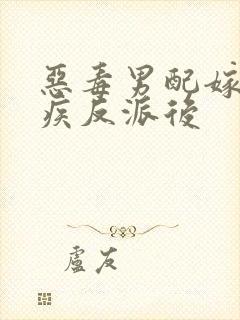 惡毒男配嫁
疾反派後
盧友